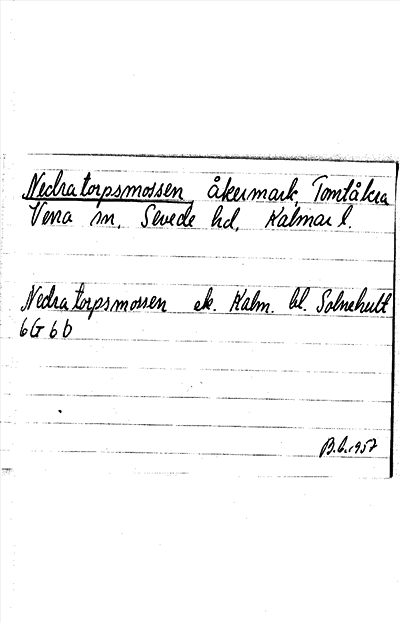 Nedratorpsmossen åkermark, Tomtåkra
Vena sn, Sevede hd, Kalmar l.
Nedratorpsmossen ek. Kalm. bl. Solnehult
6G 6b
1957